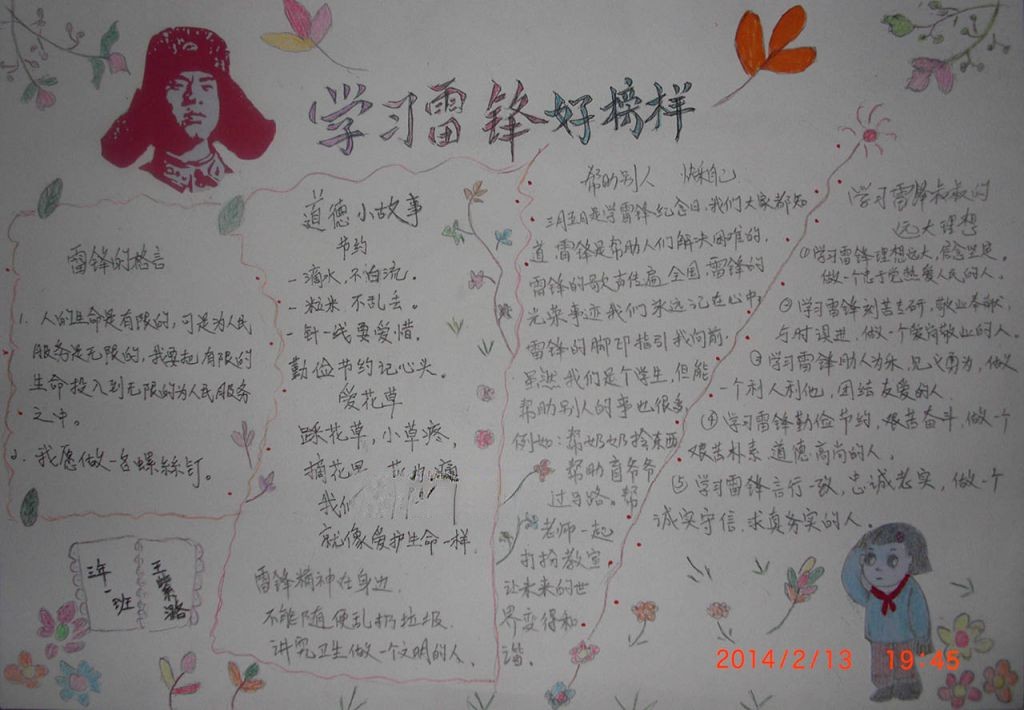 学习雷锋好榜样
雷锋的格言
1. 人的生命是有限的，可是为人民
服务是无限的，我要把有限的
生命投入到无限的为人民服务
之中。
2. 我愿做一名螺丝钉。
三年一班
道德小故事
节约
- 滴水，不白流。
- 粒米 不乱丢。
- 针一线要爱惜。
勤俭节约记心头。
爱花草
踩花草，小草疼，
摘花
我们
就像爱护生命一样。
雷锋精神在身边
不能随便乱扔垃圾
讲究卫生做一个文明的人。
帮助别人 快乐自己
三月五日是学雷锋纪念日，我们大家都知
道，雷锋是帮助人们解决困难的，
雷锋的歌声传遍全国，雷锋的
光荣事迹我们永远记在心中，
雷锋的脚印指引我向前，
虽然我们是个学生，但能
帮助别人的事也很多，
例如：帮奶奶拎东西
帮助盲爷爷
过马路。帮
老师一起
打扮教室
让未来的世
界变得和
谐。
学习雷锋叔叔的
远大理想
①学习雷锋理想远大，信念坚定，
做一个忠于党热爱人民的人。
②学习雷锋刻苦专研，敬业奉献，
与时俱进，做一个爱岗敬业的人。
③学习雷锋助人为乐，见义勇为，做
一个利人利他，团结友爱的人
④学习雷锋勤俭节约，艰苦奋斗，做一个
艰苦朴素 道德高尚的人，
⑤学习雷锋言行一致，忠诚老实，做一个
诚实守信，求真务实的人。
2014/2/13 19:45